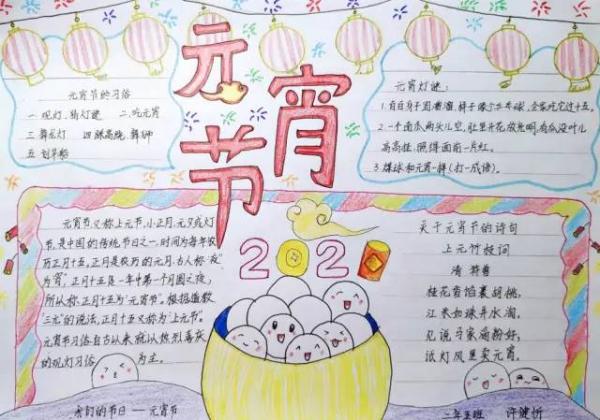 元宵节
元宵节的习俗
一 观灯、猜灯谜 二、吃元宵
三 舞龙灯 四 踩高跷 舞狮
五 划旱船
元宵灯谜:
1. 有白身子圆溜溜,样子像个乒乓球,全家吃它过十五。
2. 一个南瓜两头空,肚里开花放光明,有瓜没叶儿
高高挂,照得面前一片红。
3. 煤球和元宵一样(打一成语)。
元宵节,又称上元节,小正月、元夕或灯
节,是中国的传统节日之一,时间为每年农
历正月十五,正月是农历的元月,古人称“夜”
为“宵”,正月十五是一年中第一个月圆之夜,
所以称正月十五为“元宵节”。根据道教
“三元”的说法,正月十五又称为“上元节”。
元宵节习俗自古以来就以热烈喜庆
的观灯习俗为主。
2020
关于元宵节的诗句
上元竹枝词
清 符曾
桂花香馅裹胡桃,
江米如珠井水淘。
见说马家滴粉好,
试灯风里卖元宵。
我们的节日——元宵节
二年五班